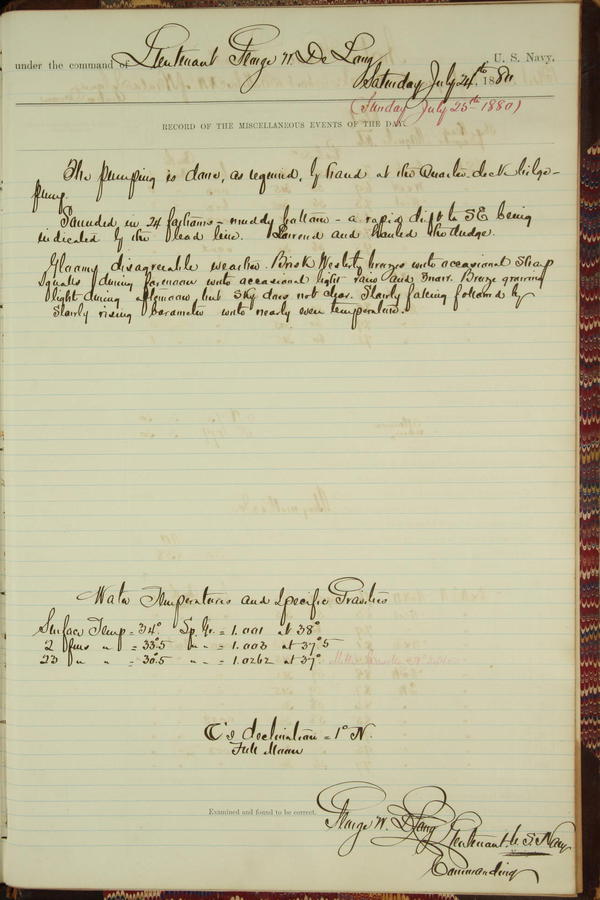 under the command of Lieutenant George W. De Long U. S. Navy.
Saturday July 24th, 1880
(Sunday July 25th 1880)
RECORD OF THE MISCELLANEOUS EVENTS OF THE DAY.
The pumping is done, as required, by hand at the Quarter-deck bilge-
pump.
Sounded in 24 fathoms - muddy bottom - a rapid drift to SE being
indicated by the lead line. Lowered and hauled the dredge.
Gloomy disagreeable weather. Brisk Westerly breezes with occasional sharp
squalls during forenoon with occasional light rain and snow. Breeze growing
light during afternoon, but sky does not clear. Slowly falling followed by
slowly rising barometer with nearly even temperature.
Water Temperatures and Specific Gravities
Surface Temp = 34° Sp. Gr. = 1.001 at 38°
2 fms " = 33.5 " " = 1.003 at 37°.5
23 " " = 30.5 " " = 1.0262 at 37°.
☾'s declination = 1° N.
Full Moon
Examined and found to be correct.
George W. De Long Lieutenant U. S. Navy
Commanding